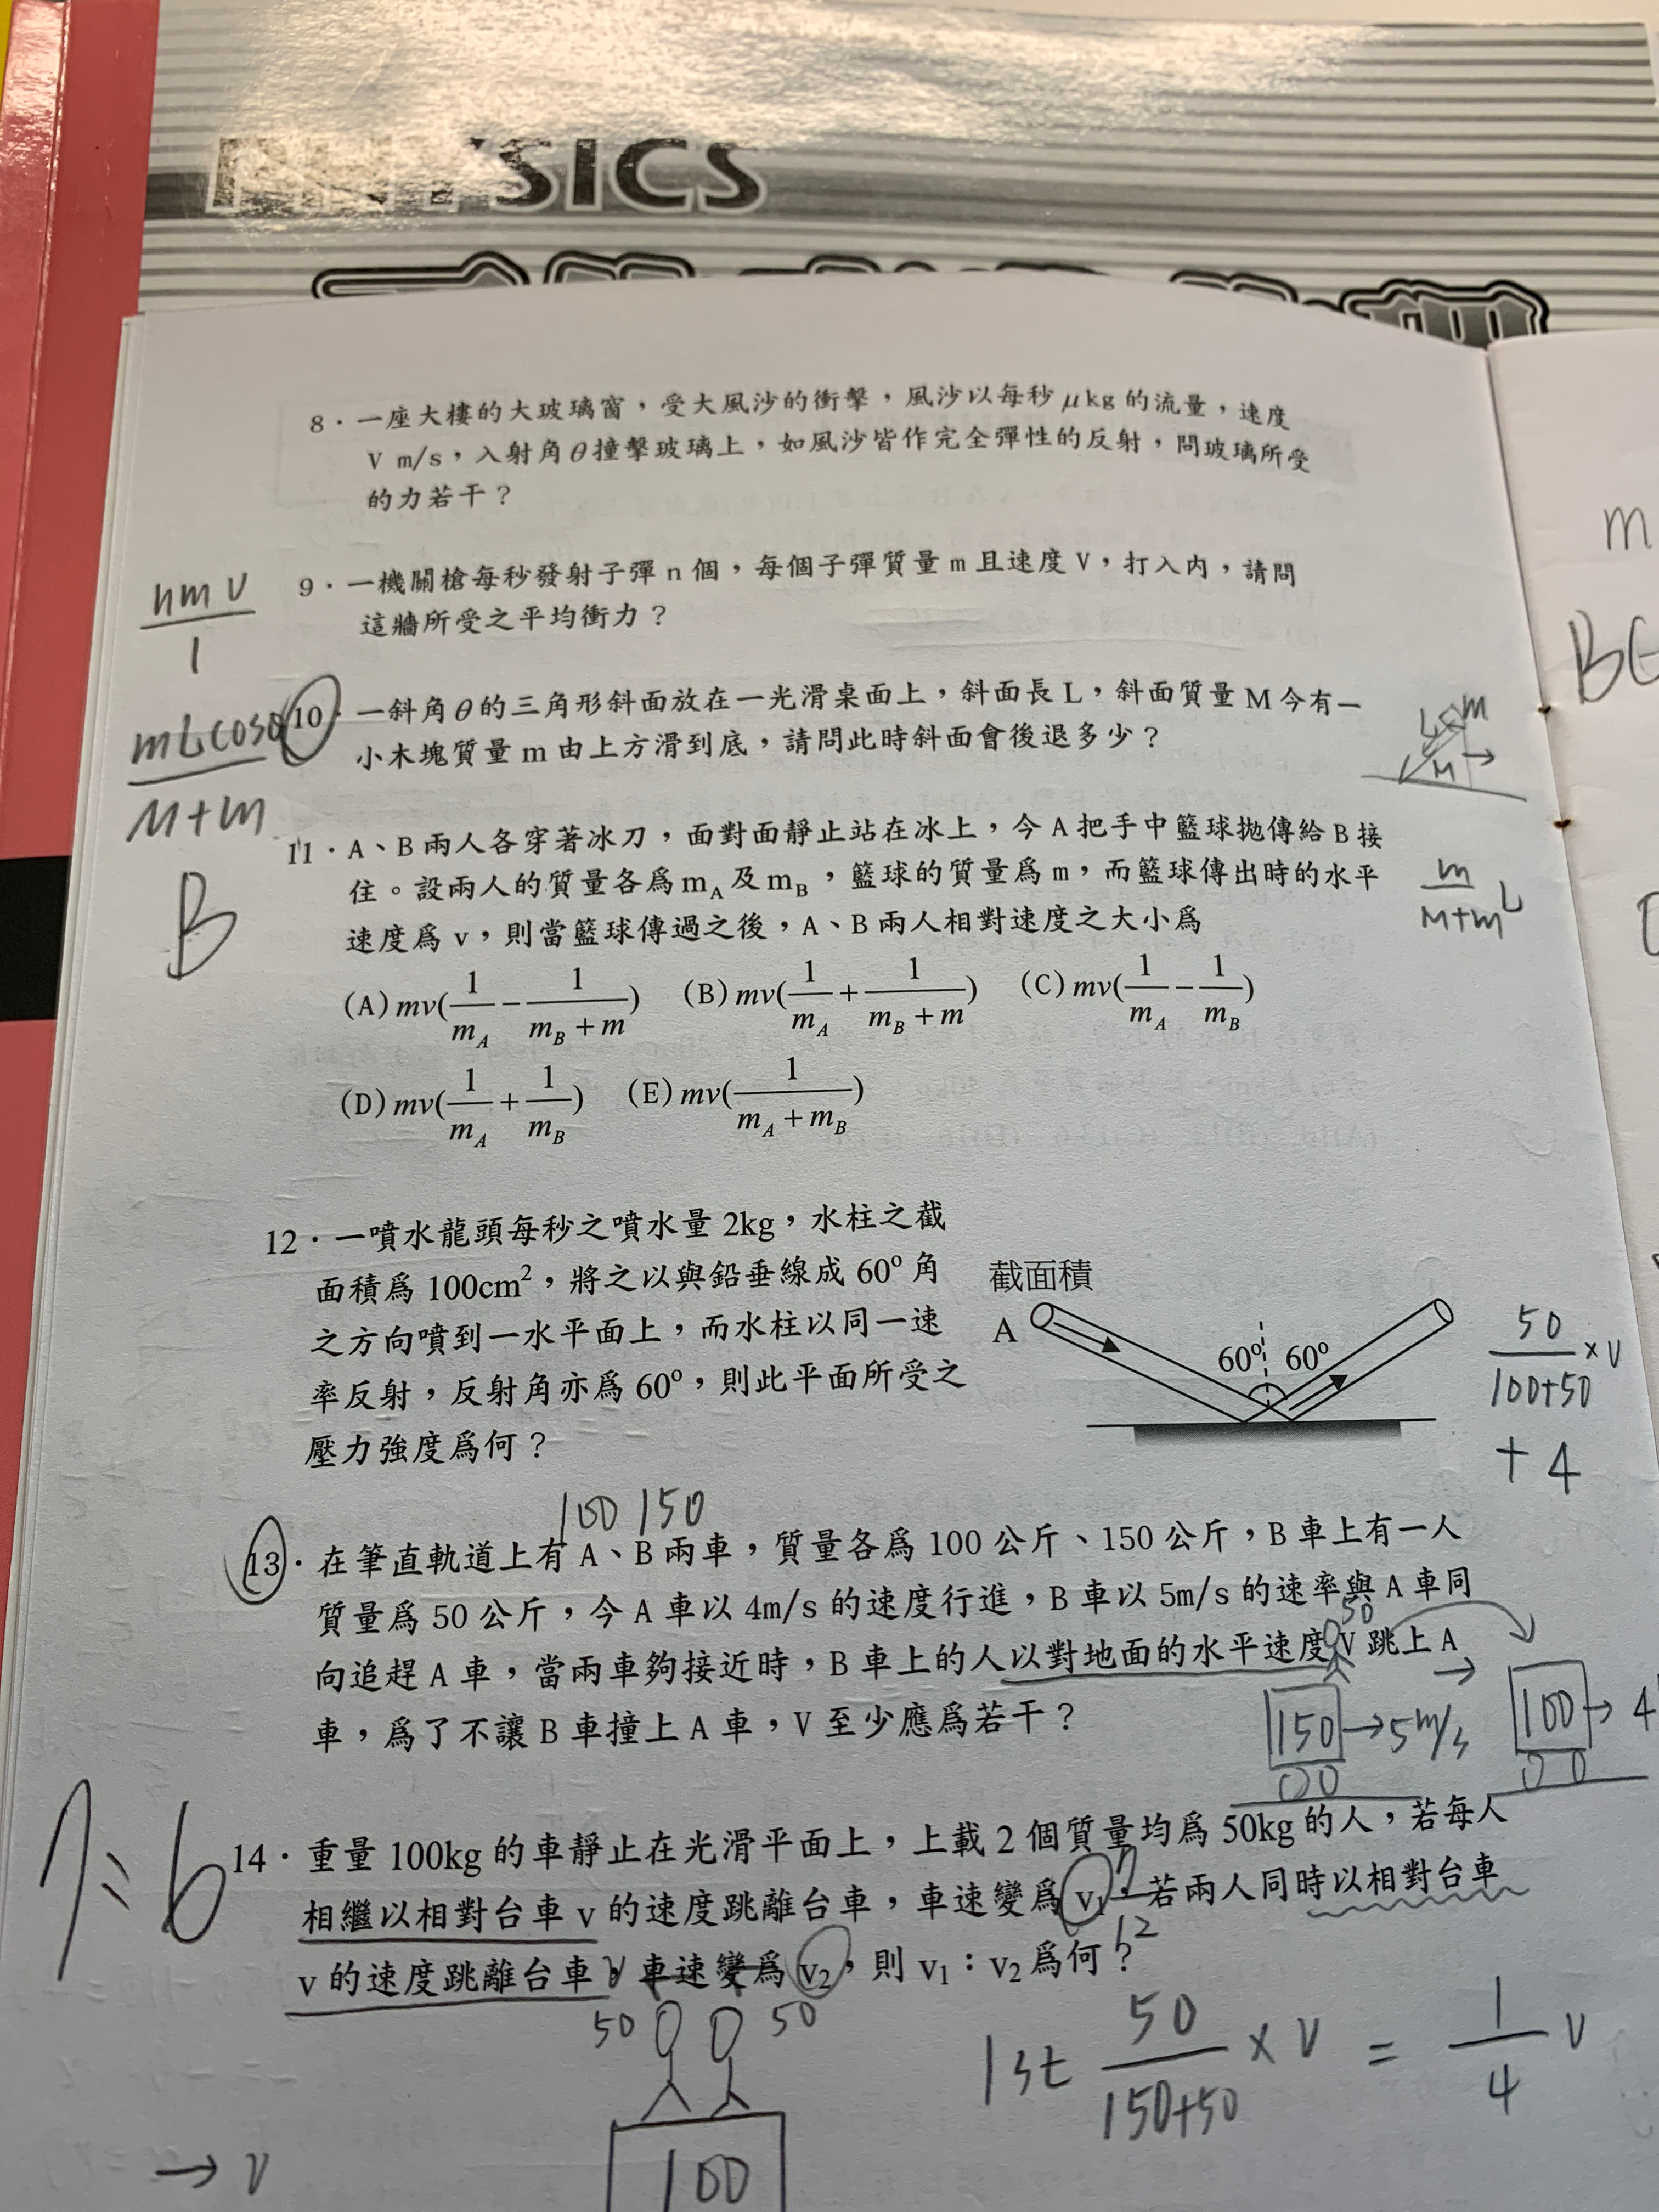 PHYSICS
8．一座大樓的大玻璃窗，受大風沙的衝擊，風沙以每秒 μkg 的流量，速度
V m/s，入射角θ撞擊玻璃上，如風沙皆作完全彈性的反射，問玻璃所受
的力若干？
nmv/1
9．一機關槍每秒發射子彈 n 個，每個子彈質量 m 且速度 V，打入內，請問
這牆所受之平均衝力？
mLcosθ/M+m
10．一斜角θ的三角形斜面放在一光滑桌面上，斜面長 L，斜面質量 M 今有一
小木塊質量 m 由上方滑到底，請問此時斜面會後退多少？
L m
M
B
11．A、B 兩人各穿著冰刀，面對面靜止站在冰上，今 A 把手中籃球拋傳給 B 接
住。設兩人的質量各爲 mA 及 mB，籃球的質量爲 m，而籃球傳出時的水平
速度爲 v，則當籃球傳過之後，A、B 兩人相對速度之大小爲
(A) mv(1/mA − 1/(mB + m)) (B) mv(1/mA + 1/(mB + m)) (C) mv(1/mA − 1/mB)
(D) mv(1/mA + 1/mB) (E) mv(1/(mA + mB))
m/M+m L
12．一噴水龍頭每秒之噴水量 2kg，水柱之截
面積爲 100cm²，將之以與鉛垂線成 60° 角
之方向噴到一水平面上，而水柱以同一速
率反射，反射角亦爲 60°，則此平面所受之
壓力強度爲何？
截面積
A
60° 60°
50/100+50 ×v
+ 4
100 150
13．在筆直軌道上有 A、B 兩車，質量各爲 100 公斤、150 公斤，B 車上有一人
質量爲 50 公斤，今 A 車以 4m/s 的速度行進，B 車以 5m/s 的速率與 A 車同
向追趕 A 車，當兩車夠接近時，B 車上的人以對地面的水平速度 V 跳上 A
車，爲了不讓 B 車撞上 A 車，V 至少應爲若干？
50
150 → 5 m/s
100 → 4
14．重量 100kg 的車靜止在光滑平面上，上載 2 個質量均爲 50kg 的人，若每人
相繼以相對台車 v 的速度跳離台車，車速變爲 v₁，若兩人同時以相對台車
v 的速度跳離台車，車速變爲 v₂，則 v₁：v₂ 爲何？
7: 6
50 50
100
→ v
1st 50/150+50 × v = 1/4 v
m